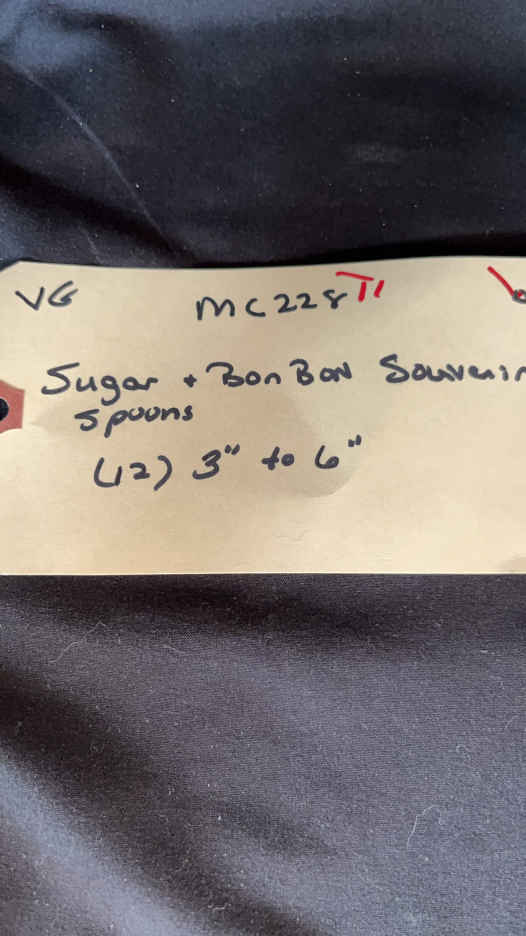 VG MC228 T1
Sugar + Bon Bon Souvenir
Spoons
(12) 3" to 6"